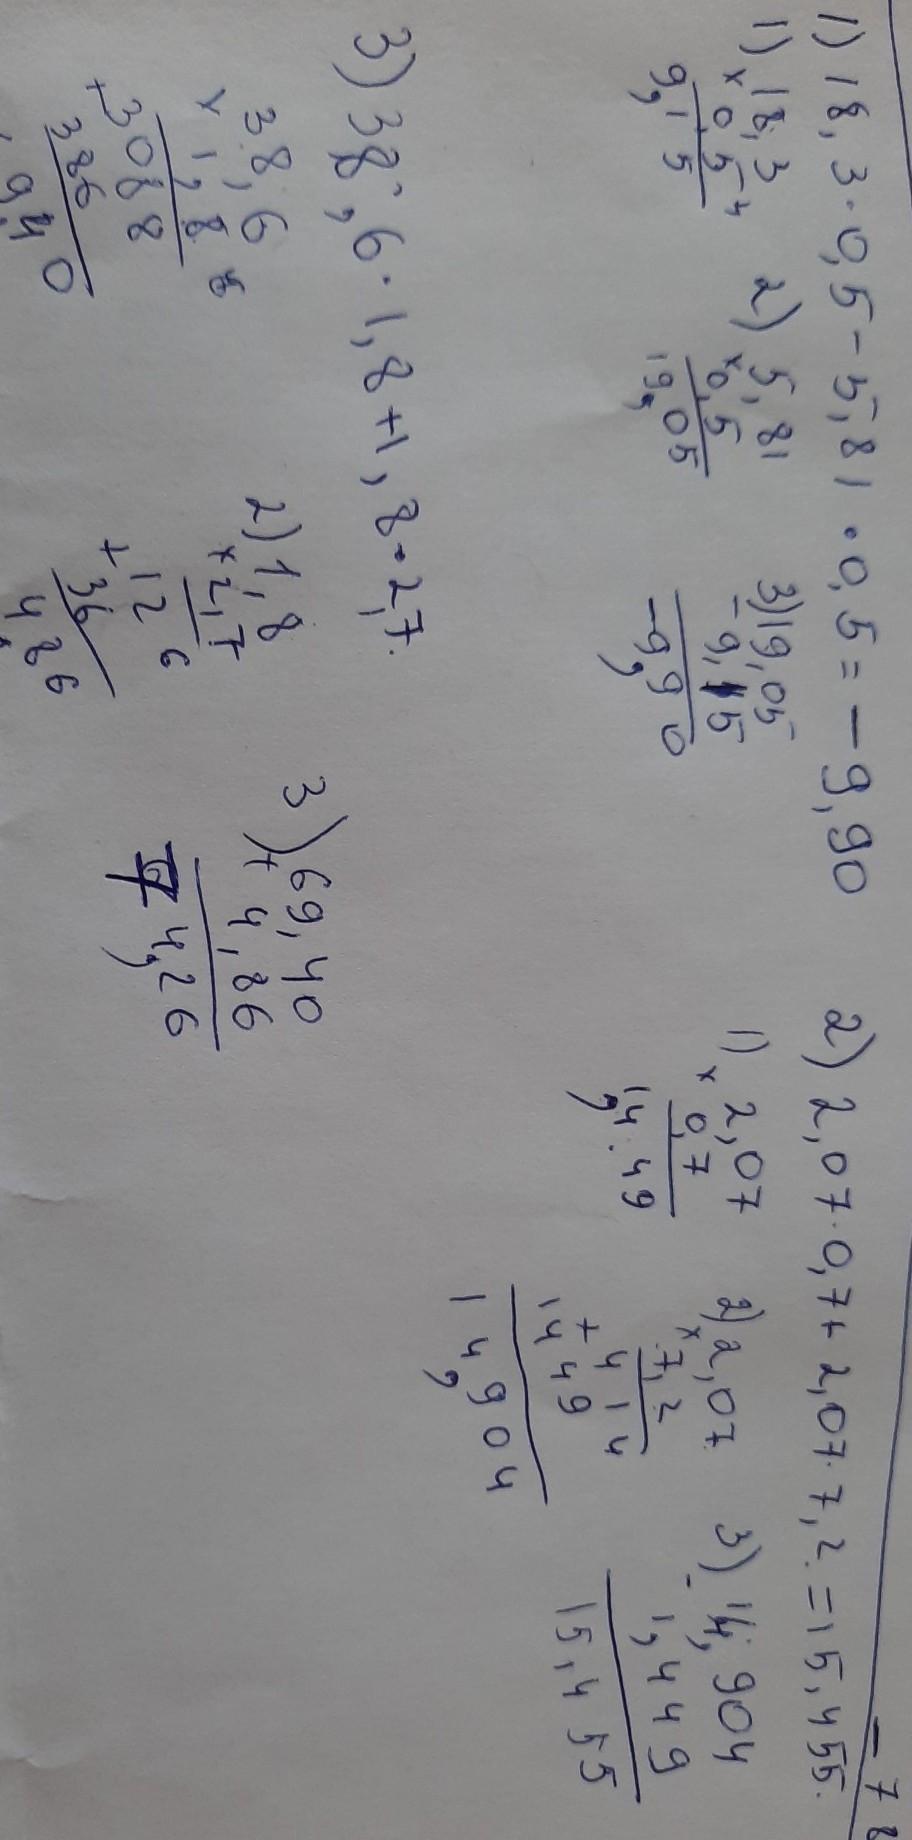 1) 18,3·0,5-5,81·0,5=-9,90
1) 18,3
× 0,5
9,15
2) 5,81
×0,5
19,05
3) 19,05
- 9,15
-9,90
2) 2,07·0,7+2,07·7,2=15,455.
1) 2,07
× 0,7
1,4.49
2) 2,07
× 7,2
4 1 4
+
1 4 4 9
14,904
3) 14,904
- 1,449
15,455
- 7 8
3) 38,6·1,8+1,8·2,7.
38,6
× 1,8
3088
+
386
9,40
2) 1,8
× 2,7
1 2 6
+
36
4,86
3) 69,40
+ 4,86
74,26